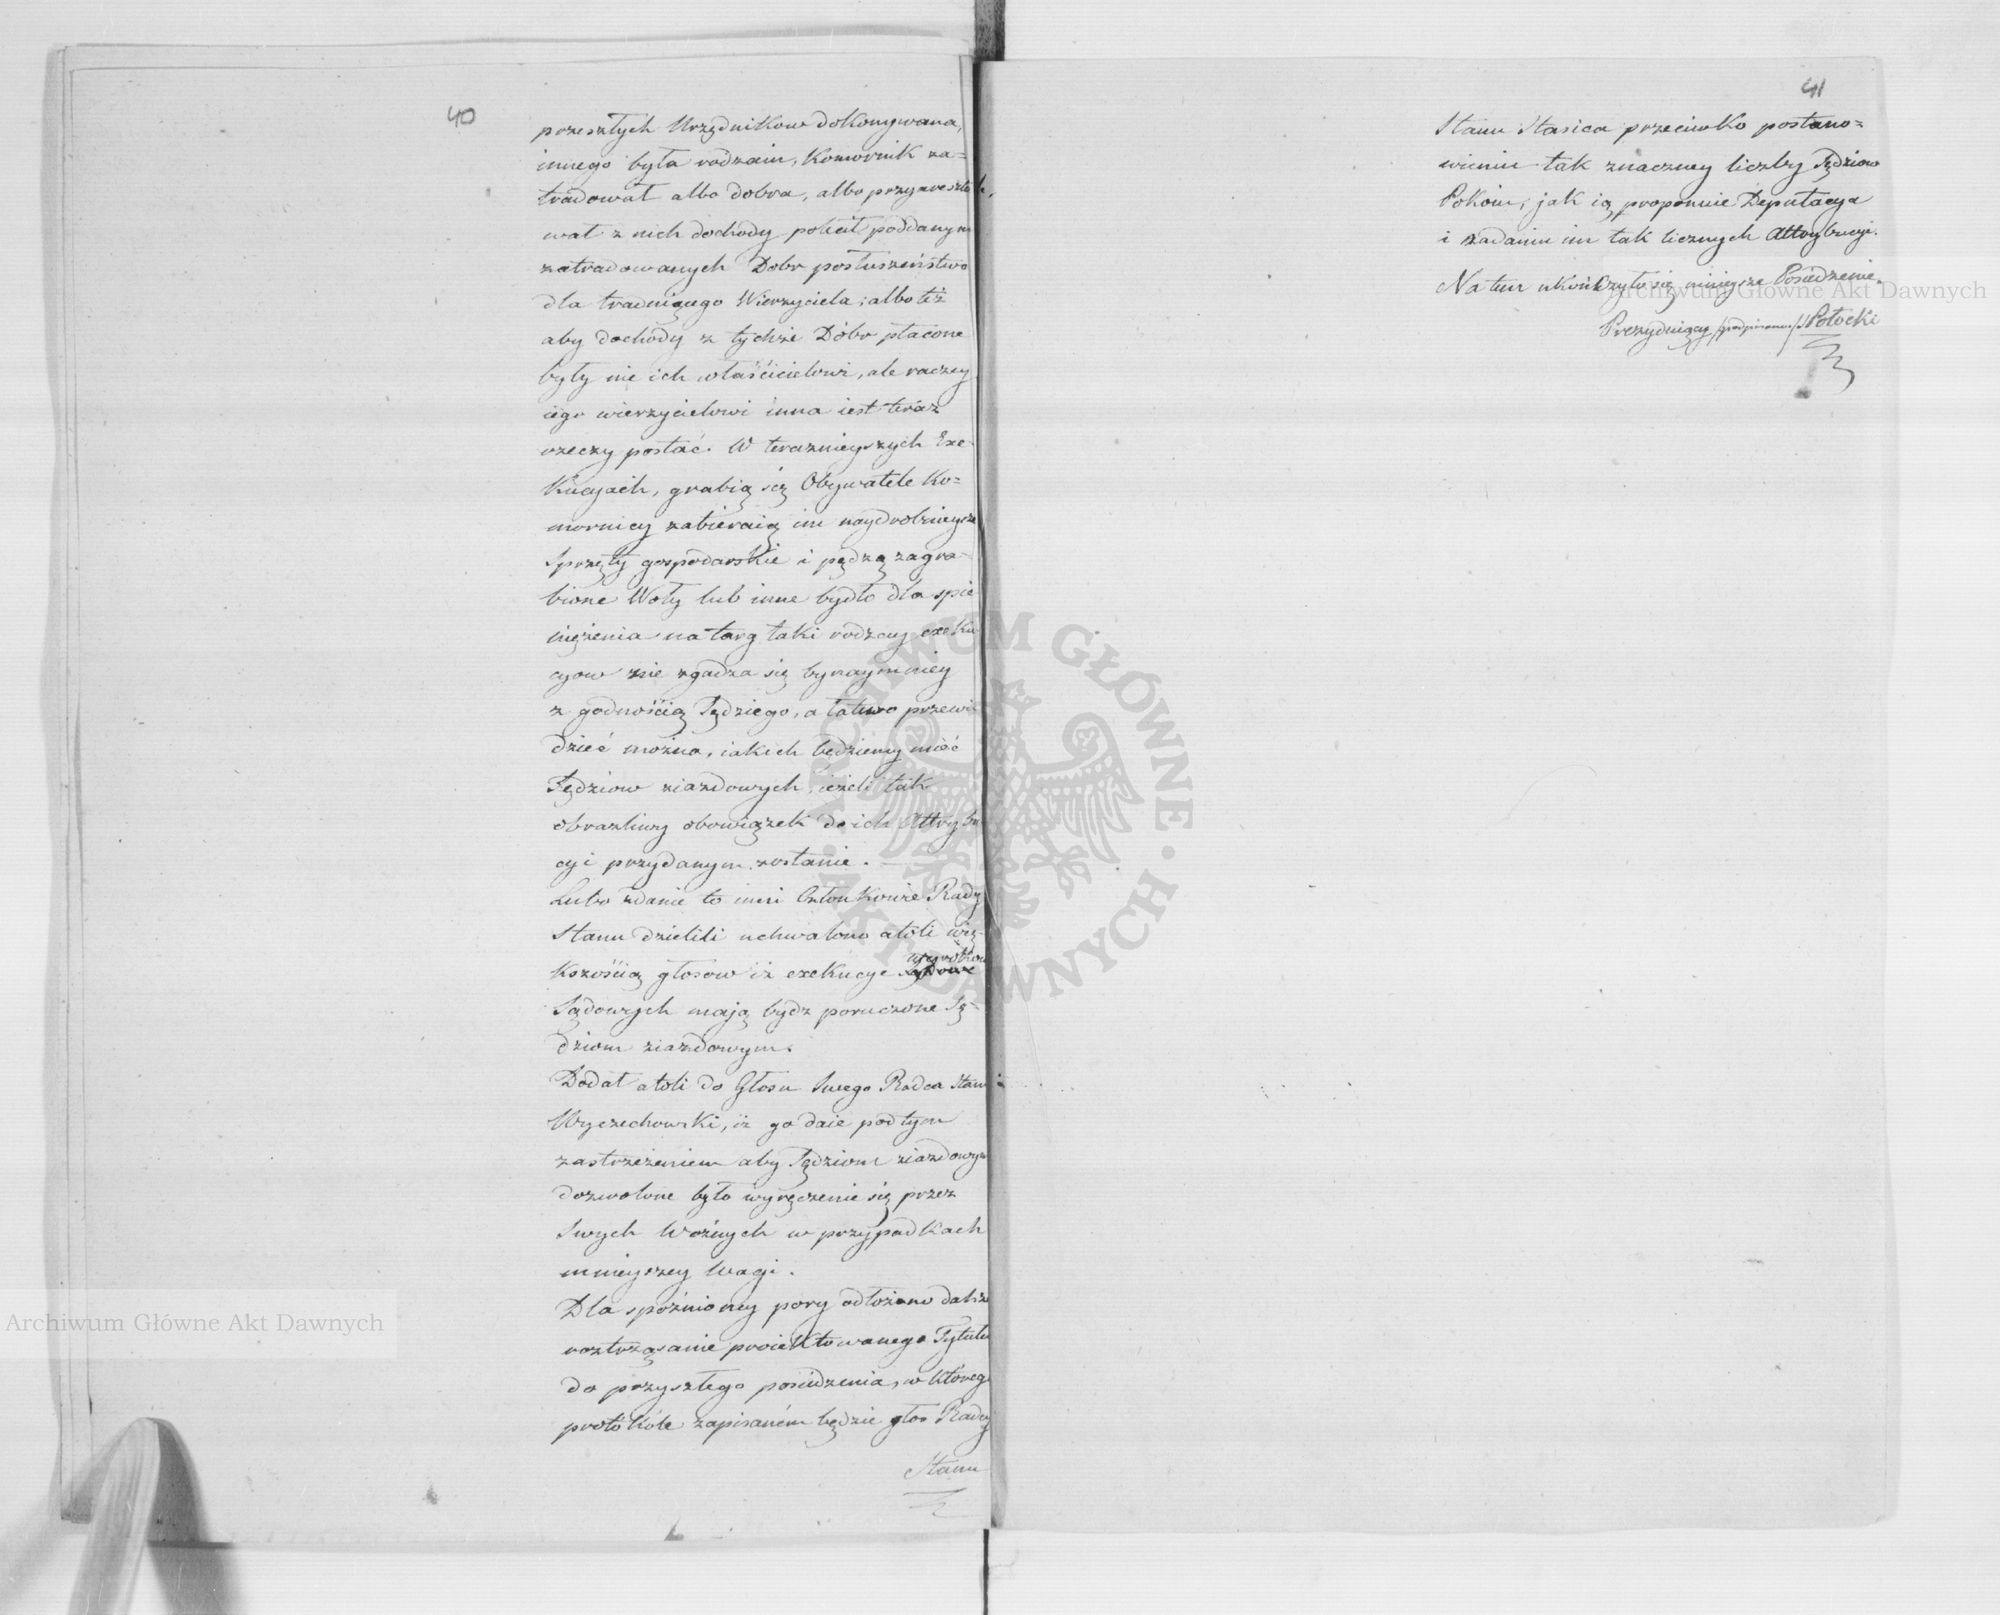 40
przeszłych Urzędnikow dokonywana,
innego była rodzaiu, Komornik za=
tradował albo dobra, albo przyareszto
wał z nich dochody polecił poddanym
zatradowanych Dobr posłuszeństwo
dla traduiącego Wierzyciela; albo też
aby dochody z tychże Dóbr płacone
były nie ich właścicielowi, ale raczey
iego wierzycielowi inna iest teraz
rzeczy postać. W teraznieyszych Exe=
kucyach, grabią się Obywatele Ko=
mornicy zabieraią im naydrobnieysze
Sprzęty gospodarskie i pędzą zagra=
bione Woły lub inne bydło dla spie
niężenia na targ taki rodzay exeku
cyow nie zgadza się bynaymniey
z godnością Sędziego, a łatwo przewi
dzieć można, iakich będziemy mieć
Sędziow ziazdowych, ieżeli tak
obraźliwy obowiązek do ich Attrybu
cyi przydanym zostanie.
Lubo zdanie to inni Członkowie Rady
Stanu dzielili uchwalono atoli wię=
kszością głosow iż exekucye wyrokow
Sądowych mają bydz poruczone Sę=
dziom ziazdowym.
Dodał atoli do Głosu Swego Radca Stanu
Wyczechowski, iż go daie pod tym
zastrzeżeniem aby Sędziom ziazdowym
dozwolone było wyręczenie się przez
Swych Woźnych w przypadkach
mnieyszey Wagi.
Dla spóźnioney pory odłożono dalsze
roztrząsanie proiektowanego Tytułu
do przyszłego posiedzenia, w którego
protokóle zapisaném będzie głos Radcy
Stanu
41
Stanu Stasica przeciwko postano=
wieniu tak znaczney liczby Sędziow
Pokoiu, jak ią proponuie Deputacya
i zadaniu im tak licznych Attrybucyi.
Na tem ukończyło się ninieysze Posiedzenie.
Prezyduiący /podpisano/ Potocki
Archiwum Główne Akt Dawnych
Archiwum Główne Akt Dawnych
ARCHIWUM GŁÓWNE · AKT DAWNYCH ·